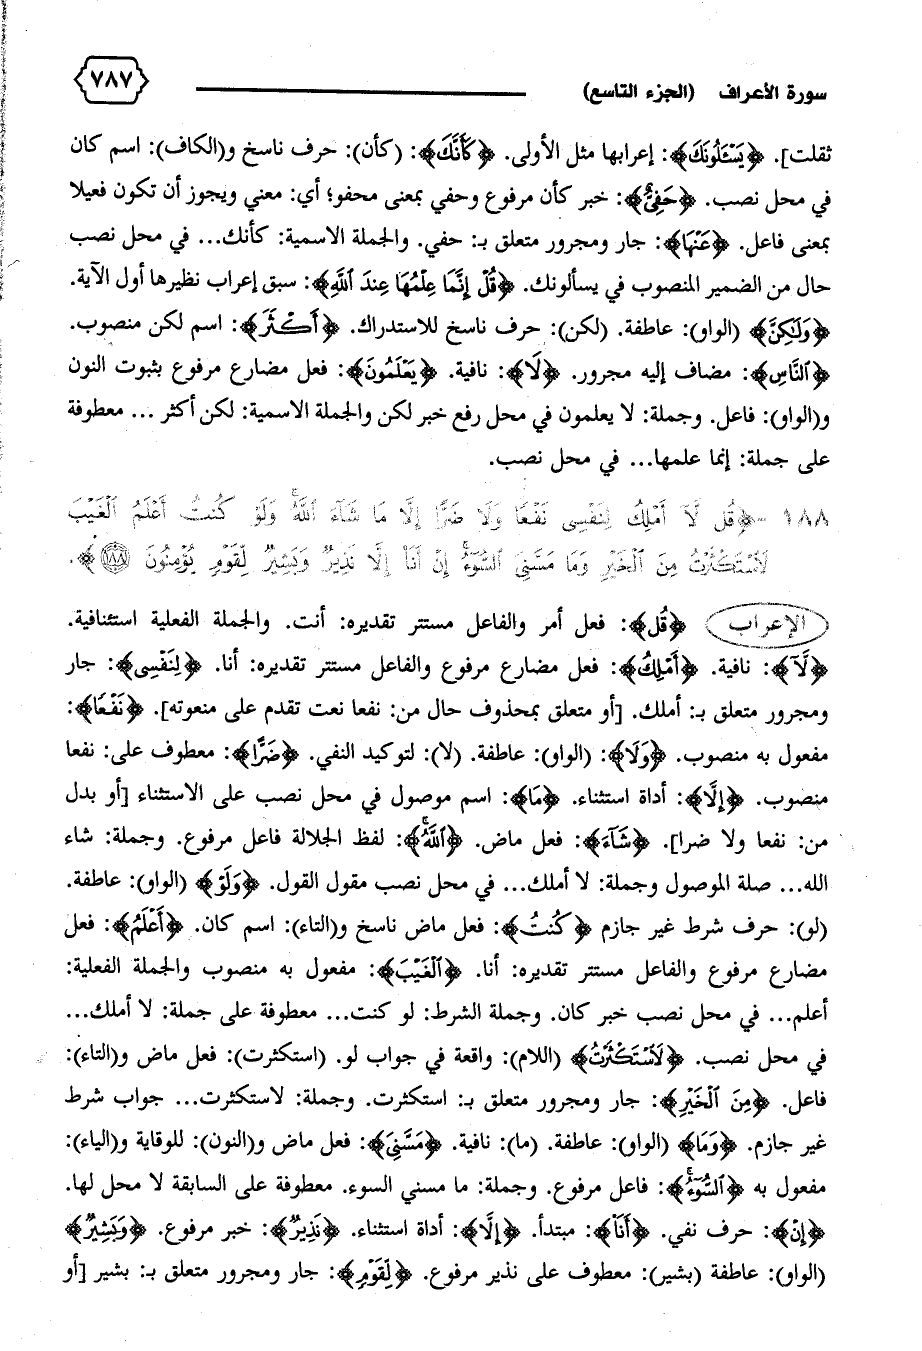 سورة الأعراف (الجزء التاسع) ٧٨٧
ثقلت]. ﴿يَسْـَٔلُونَكَ﴾: إعرابها مثل الأولى. ﴿كَأَنَّكَ﴾: (كأن): حرف ناسخ و(الكاف): اسم كان
في محل نصب. ﴿حَفِيٌّ﴾: خبر كأن مرفوع وحفي بمعنى محفو؛ أي: معني ويجوز أن تكون فعيلا
بمعنى فاعل. ﴿عَنْهَا﴾: جار ومجرور متعلق بـ: حفي. والجملة الاسمية: كأنك... في محل نصب
حال من الضمير المنصوب في يسألونك. ﴿قُلْ إِنَّمَا عِلْمُهَا عِندَ اللَّهِ﴾: سبق إعراب نظيرها أول الآية.
﴿وَلَٰكِنَّ﴾ (الواو): عاطفة. (لكن): حرف ناسخ للاستدراك. ﴿أَكْثَرَ﴾: اسم لكن منصوب.
﴿ٱلنَّاسِ﴾: مضاف إليه مجرور. ﴿لَا﴾: نافية. ﴿يَعْلَمُونَ﴾: فعل مضارع مرفوع بثبوت النون
و(الواو): فاعل. وجملة: لا يعلمون في محل رفع خبر لكن والجملة الاسمية: لكن أكثر ... معطوفة
على جملة: إنما علمها... في محل نصب.
١٨٨ -﴿قُل لَّآ أَمْلِكُ لِنَفْسِى نَفْعًا وَلَا ضَرًّا إِلَّا مَا شَآءَ ٱللَّهُ ۚ وَلَوْ كُنتُ أَعْلَمُ ٱلْغَيْبَ
لَٱسْتَكْثَرْتُ مِنَ ٱلْخَيْرِ وَمَا مَسَّنِىَ ٱلسُّوٓءُ ۚ إِنْ أَنَا۠ إِلَّا نَذِيرٌ وَبَشِيرٌ لِّقَوْمٍ يُؤْمِنُونَ ١٨٨﴾.
الإعراب ﴿قُل﴾: فعل أمر والفاعل مستتر تقديره: أنت. والجملة الفعلية استئنافية.
﴿لَّآ﴾: نافية. ﴿أَمْلِكُ﴾: فعل مضارع مرفوع والفاعل مستتر تقديره: أنا. ﴿لِنَفْسِى﴾: جار
ومجرور متعلق بـ: أملك. [أو متعلق بمحذوف حال من: نفعا نعت تقدم على منعوته]. ﴿نَفْعًا﴾:
مفعول به منصوب. ﴿وَلَا﴾: (الواو): عاطفة. (لا): لتوكيد النفي. ﴿ضَرًّا﴾: معطوف على: نفعا
منصوب. ﴿إِلَّا﴾: أداة استثناء. ﴿مَا﴾: اسم موصول في محل نصب على الاستثناء [أو بدل
من: نفعا ولا ضرا]. ﴿شَآءَ﴾: فعل ماض. ﴿ٱللَّهُ ۚ﴾: لفظ الجلالة فاعل مرفوع. وجملة: شاء
الله... صلة الموصول وجملة: لا أملك... في محل نصب مقول القول. ﴿وَلَوْ﴾ (الواو): عاطفة.
(لو): حرف شرط غير جازم ﴿كُنتُ﴾: فعل ماض ناسخ و(التاء): اسم كان. ﴿أَعْلَمُ﴾: فعل
مضارع مرفوع والفاعل مستتر تقديره: أنا. ﴿ٱلْغَيْبَ﴾: مفعول به منصوب والجملة الفعلية:
أعلم... في محل نصب خبر كان. وجملة الشرط: لو كنت... معطوفة على جملة: لا أملك...
في محل نصب. ﴿لَٱسْتَكْثَرْتُ﴾ (اللام): واقعة في جواب لو. (استكثرت): فعل ماض و(التاء):
فاعل. ﴿مِنَ ٱلْخَيْرِ﴾: جار ومجرور متعلق بـ: استكثرت. وجملة: لاستكثرت... جواب شرط
غير جازم. ﴿وَمَا﴾ (الواو): عاطفة. (ما): نافية. ﴿مَسَّنِىَ﴾: فعل ماض و(النون): للوقاية و(الياء):
مفعول به ﴿ٱلسُّوٓءُ ۚ﴾: فاعل مرفوع. وجملة: ما مسني السوء. معطوفة على السابقة لا محل لها.
﴿إِنْ﴾: حرف نفي. ﴿أَنَا۠﴾: مبتدأ. ﴿إِلَّا﴾: أداة استثناء. ﴿نَذِيرٌ﴾: خبر مرفوع. ﴿وَبَشِيرٌ﴾
(الواو): عاطفة (بشير): معطوف على نذير مرفوع. ﴿لِّقَوْمٍ﴾: جار ومجرور متعلق بـ: بشير [أو